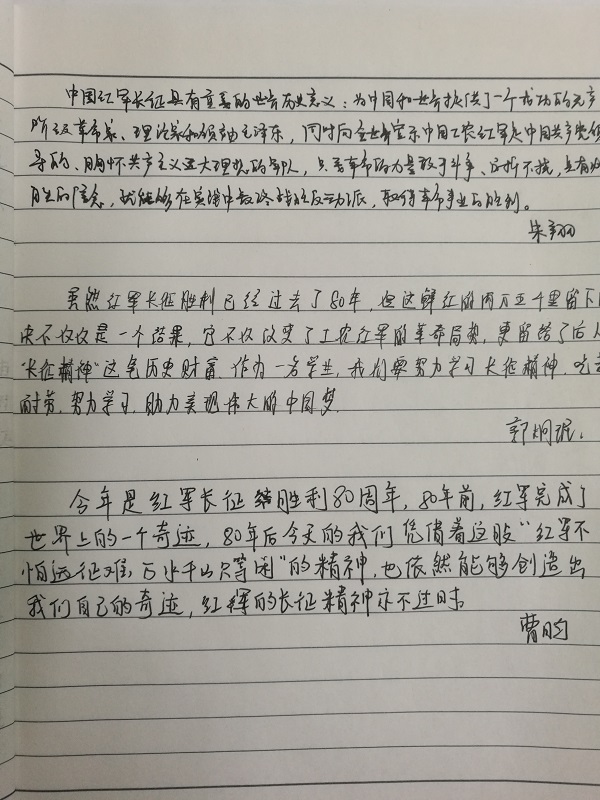 中国红军长征具有重要的世界历史意义：为中国和世界提供了一个成功的无产
阶级革命家、理论家和领袖毛泽东，同时向全世界宣示中国工农红军是中国共产党领
导的、胸怀共产主义远大理想的军队，只要革命的力量敢于斗争、百折不挠，具有必
胜的信念，就能够在实践中最终战胜反动派，取得革命事业的胜利。
朱翔
虽然红军长征胜利已经过去了80年，但这鲜红的两万五千里留下的
决不仅仅是一个结果，它不仅改变了工农红军的革命局势，更留给了后人
"长征精神"这笔历史财富。作为一名学生，我们要努力学习长征精神，吃苦
耐劳，努力学习，助力实现伟大的中国梦.
郭炯珉.
今年是红军长征结胜利80周年，80年前，红军完成了
世界上的一个奇迹，80年后今天的我们凭借着这股"红军不
怕远征难，万水千山只等闲"的精神，也依然能够创造出
我们自己的奇迹，红辉的长征精神亦不过时。
曹昀